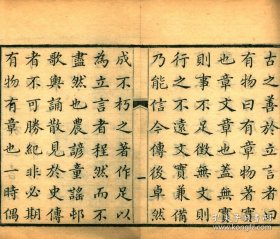 古之善於立言者曰
有物曰有章物者實
也章者文也盖無實
則事不足徵無文則
行之不遠文實兼備
乃能信今傳後卓然
一
成不朽之著作足以
為立言者程然而不
盡然也農諺童謡邨
歌輿誦散見於史傳
者不可勝紀非必期
有物有章也一時偶